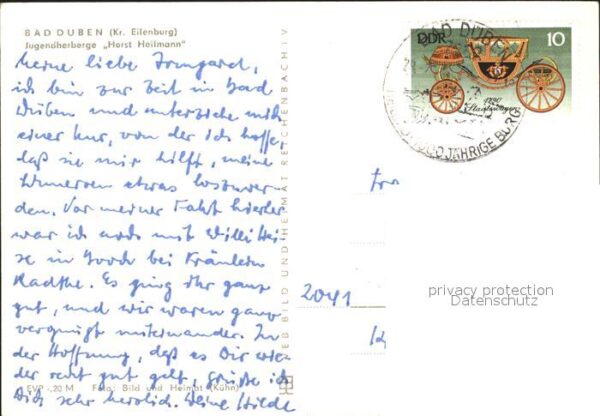 BAD DÜBEN (Kr. Eilenburg)
Jugendherberge „Horst Heilmann"
Meine liebe Irmgard,
ich bin zur Zeit in Bad
Düben und unterziehe mich
einer Kur, von der ich hoffe,
daß sie mir hilft, meine
etwas loszuwer-
den. Vor meiner Fahrt hierher
war ich noch mit Willi Hei-
se in bei Fräulein
Radthe. Es ging ihr ganz
gut, und wir waren ganz
vergnügt miteinander. In
der Hoffnung, daß es Dir wie-
der recht gut geht, grüße ich
Dich sehr herzlich. Deine Hilde
EVP -,20 M Foto: Bild und Heimat (Kühn)
VEB BILD UND HEIMAT REICHENBACH i V
DDR
10
1790
Staatswagen
BAD DÜBEN
JAHRE 1000JÄHRIGE BURG
Frau
2041
privacy protection
Datenschutz